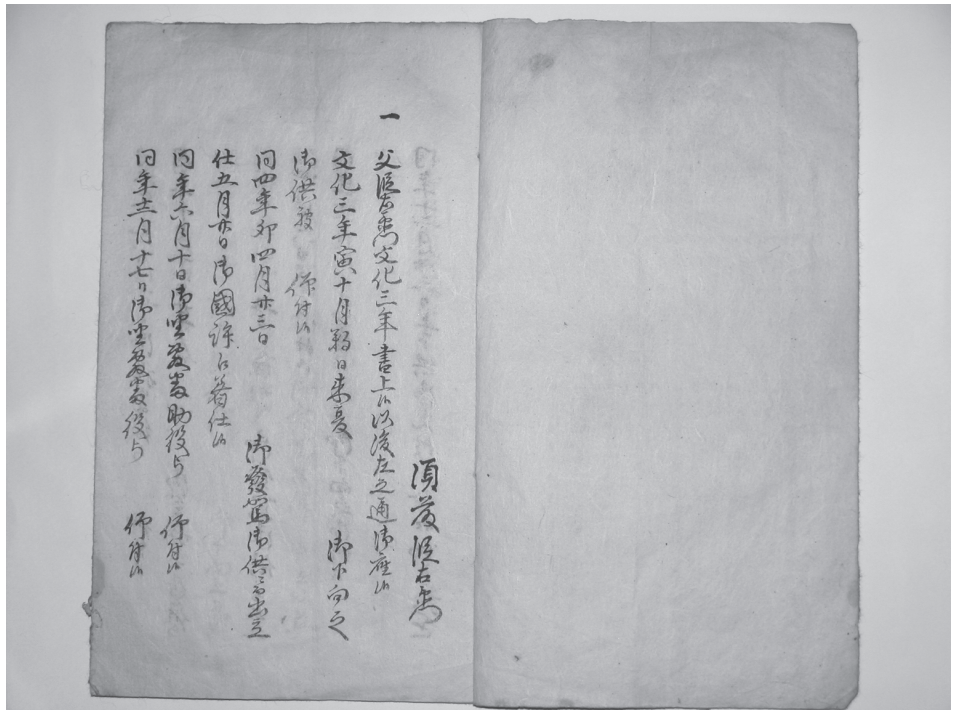 須藤段右衛門
一 父段右衛門文化三年書上候以後左之通御座候
文化三年寅十月朔日来夏 御下向之
御供被 仰付候
同四年卯四月廿三日 御發駕御供ニ而出立
仕五月廿日御國許江着仕候
同年六月十日御里歳助役ゟ 仰付候
同年十二月十七日御 役ゟ 仰付候